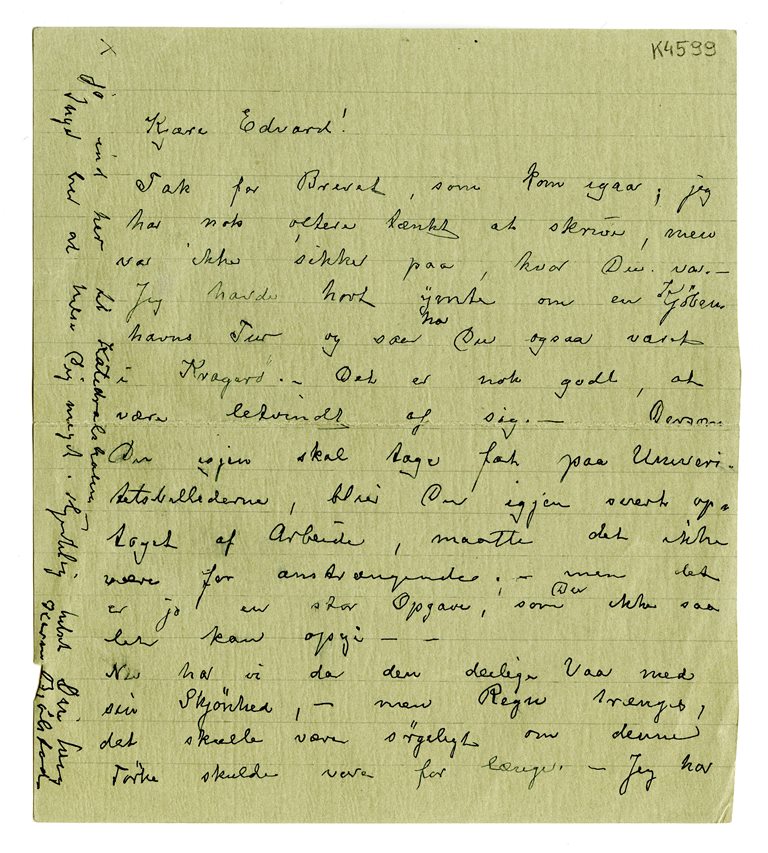 K4599
Kjære Edvard!
Tak for Brevet, som kom igaar, jeg
har nok oftere tænkt at skrive, men
var ikke sikker paa, hvor Du var. –
Jeg havde hørt ymte om en Kjöben-
havns Tur og saa har Du ogsaa været
i Kragerö. – Det er nok godt, at
være letvindt af sig. – Dersom
Du igjen skal tage fat paa Univeri-
tetsbillederne, blir Du igjen svært op-
taget af Arbeide, maatte det ikke
være for anstrængende. – men det
er jo en stor Opgave, som Du ikke saa
let kan opgi – –
Nu har vi da den deilige Vaar med
sin Skjönhed, – men Regn trænges,
det skulle være sørgeligt om denne
Tørke skulde vare for længe. – Jeg har
x
jo ind her til Katedralskolen
Inger ber at hilse Dig meget. Hjertelig hilset Din
Karen Bjølstad